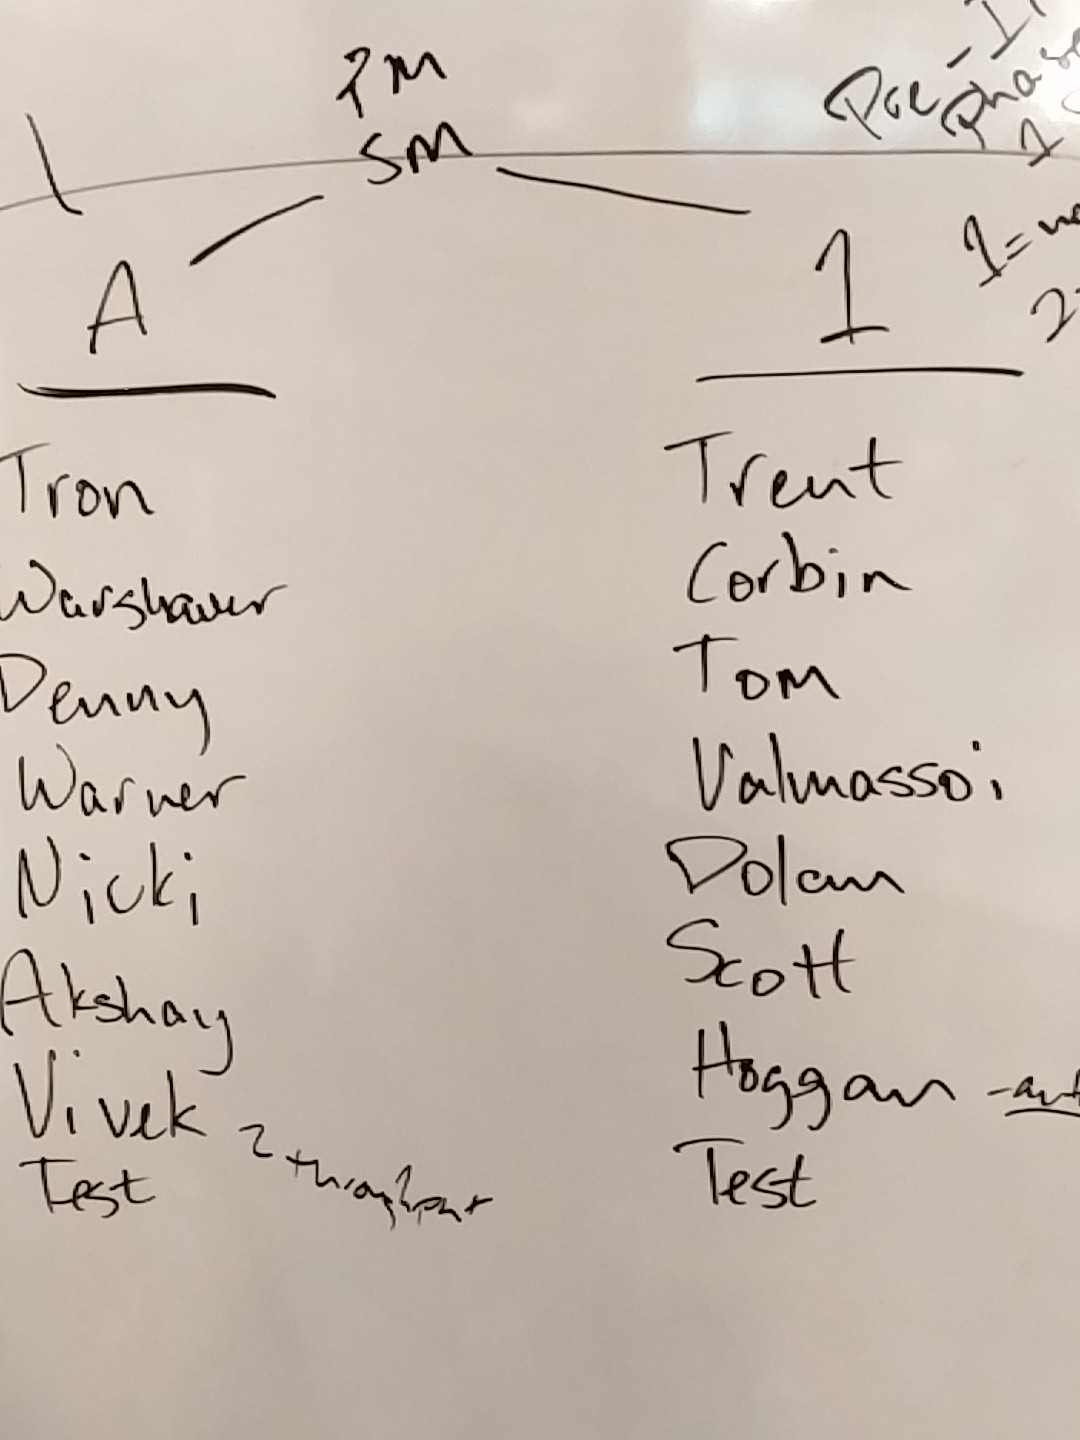 PM
SM
A
Tron
Warshauer
Denny
Warner
Nicki
Akshay
Vivek
Test
2 throughput
Pre-Phase
1
1
1=
2
Trent
Corbin
Tom
Valmassoi
Dolan
Scott
Hoggan
Test